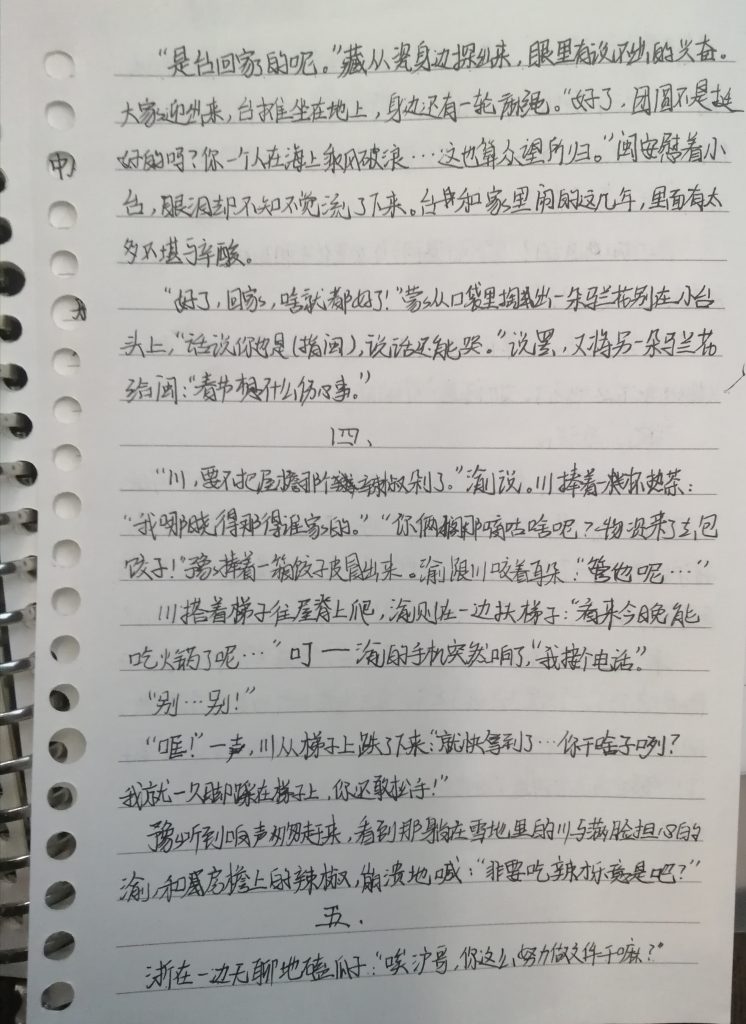 “是台回家的呢。”藏从瓷身边探出来，眼里有说不出的兴奋。
大家迎出来，台摊坐在地上，身边还有一轮麻绳。“好了，团圆不是挺
好的吗？你一个人在海上乘风破浪…这也算众望所归。”闽安慰着小
台，眼泪却不知不觉流了下来。台和家里闹的这几年，里面有太
多不堪与辛酸。
“好了，回家，啥就都好了！”蒙从口袋里掏出一朵马兰花别在小台
头上，“话说你也是（指闽），说话还能哭。”说罢，又将另一朵马兰花
给闽：“春节想什么伤心事。”
四、
“川，要不把屋檐那个辣椒剁了。”渝说。川捧着一杯热茶：
“我哪晓得那得谁家的。”“你俩搁那嘀咕啥呢？物资来了去包
饺子！”豫捧着一箱饺子皮冒出来。渝跟川咬着耳朵：“管他呢…”
川搭着梯子往屋脊上爬，渝则在一边扶梯子：“看来今晚能
吃火锅了呢…”叮——渝的手机突然响了，“我接个电话”。
“别…别！”
“哐！”一声，川从梯子上跌了下来：“就快拿到了…你干啥子咧？
我就一只脚踩在梯子上，你还敢松手！”
豫听到响声匆匆赶来，看到那躺在雪地里的川与满脸担心的
渝，和房檐上的辣椒，崩溃地喊：“非要吃辣才乐意是吧？”
五、
浙在一边无聊地嗑瓜子：“唉沪哥，你这么努力做文件干嘛？”
中